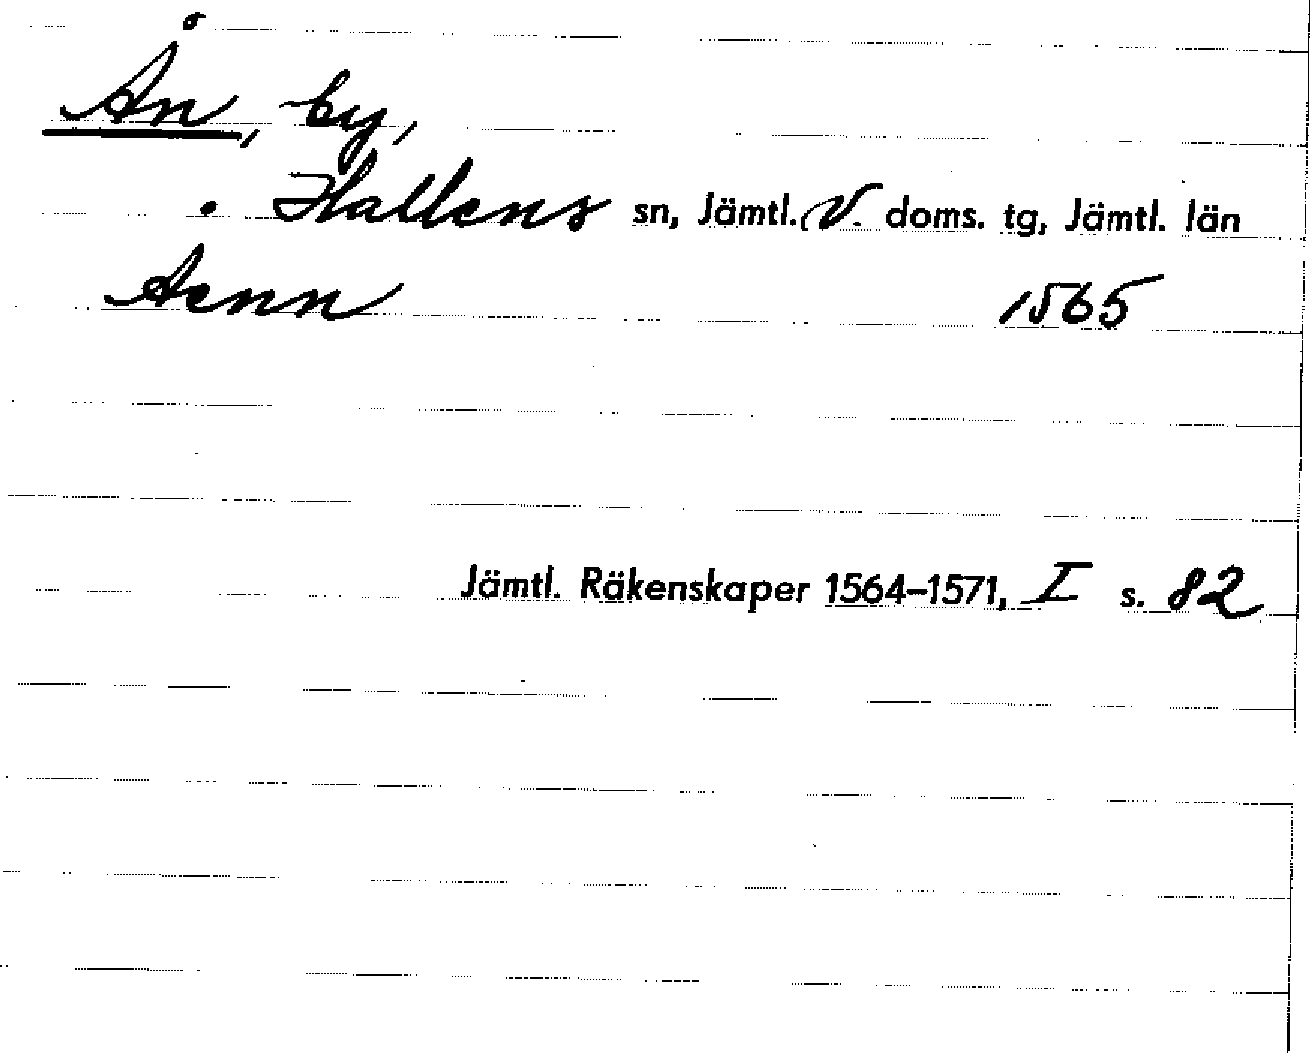 Ån, by,
Hallens sn, Jämtl. V. doms. tg, Jämtl. län
Aenn 1565
Jämtl. Räkenskaper 1564–1571, I s. 82